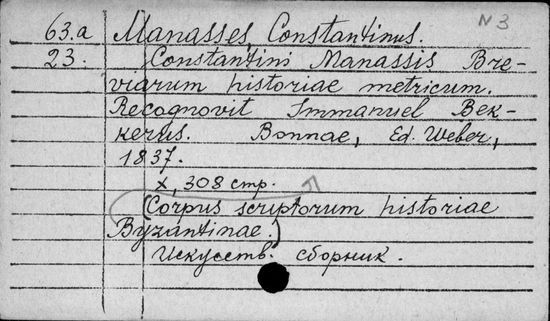 N 3
63.a Manasses, Constantinus.
23. Constantini Manassis Bre-
viarum historiae metricum.
Recognovit Immanuel Bek-
kerus. Bonnae, Ed. Weber,
1837.
X, 308 стр.
(Corpus scriptorum historiae
Byzantinae.)
Искусств. сборник.